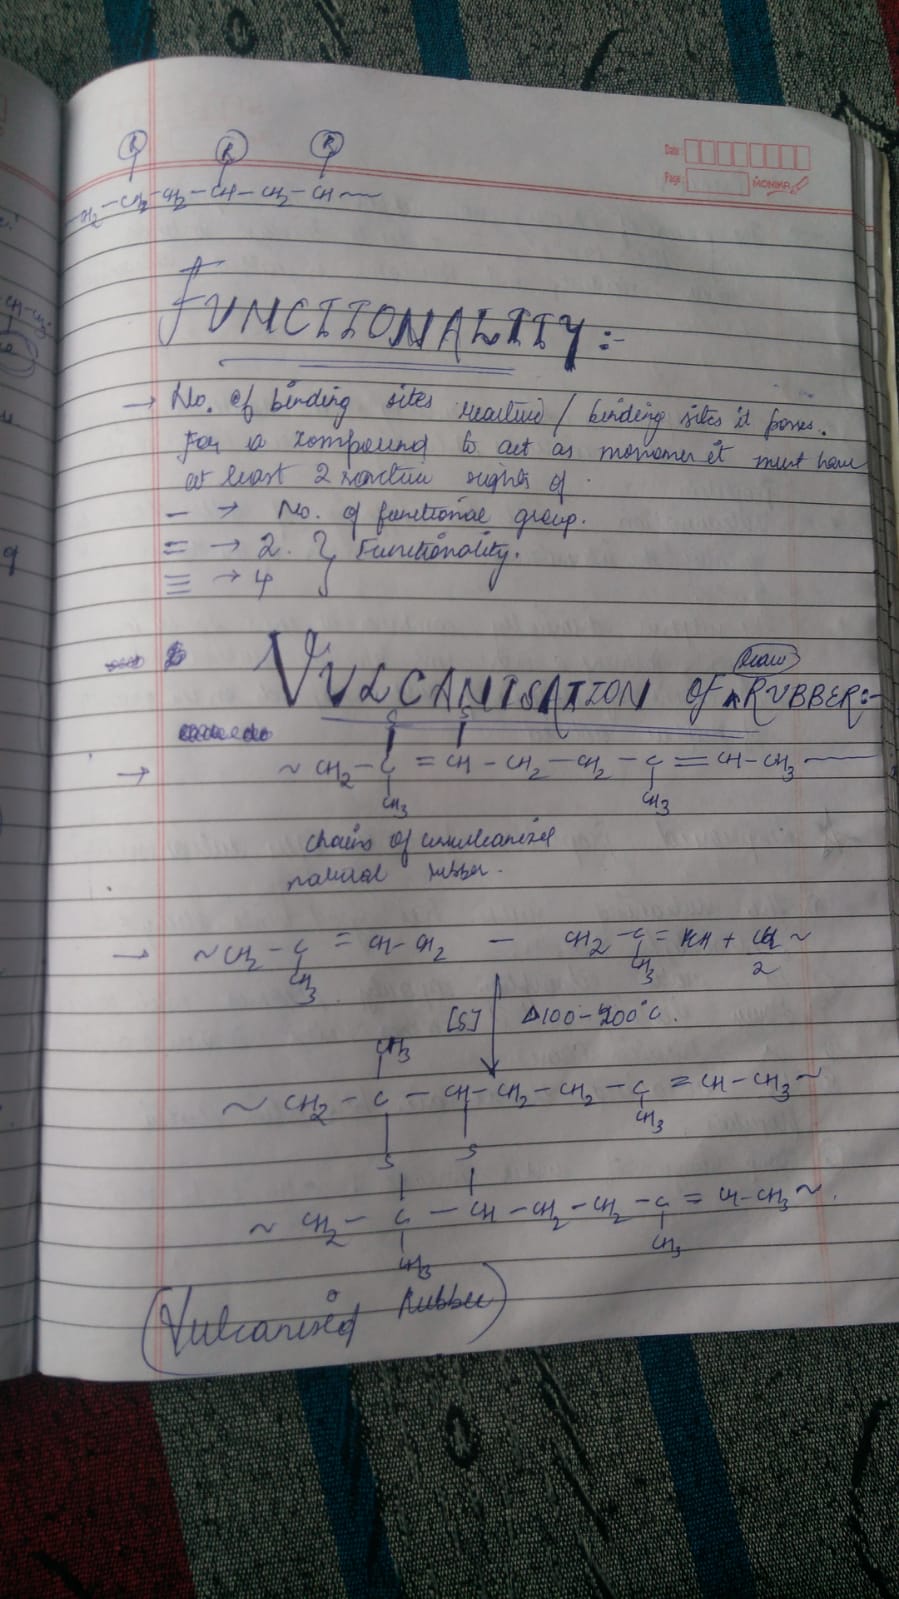 R R R
CH2 - CH2 - CH2 - CH - CH2 - CH ~
Date:
Page:
MONIKA
FUNCTIONALITY :-
→ No. of binding sites reactive / binding sites it poses.
For a compound to act as monomer it must have
at least 2 reactive sights of
- → No. of functional group.
= → 2. } Functionality.
≡ → 4
VULCANISATION OF RAW RUBBER :-
S S
→ ~ CH2 - C = CH - CH2 - CH2 - C = CH - CH3 ~
CH3 CH3
chains of unvulcanized
natural rubber.
→ ~ CH2 - C = CH - CH2 - CH2 - C = CH +
CH3 CH3 2
[S] Δ100-200°C.
CH3
~ CH2 - C - CH - CH2 - CH2 - C = CH - CH3 ~
CH3
S S
~ CH2 - C - CH - CH2 - CH2 - C = CH - CH3 ~.
CH3 CH3
(Vulcanised Rubber)